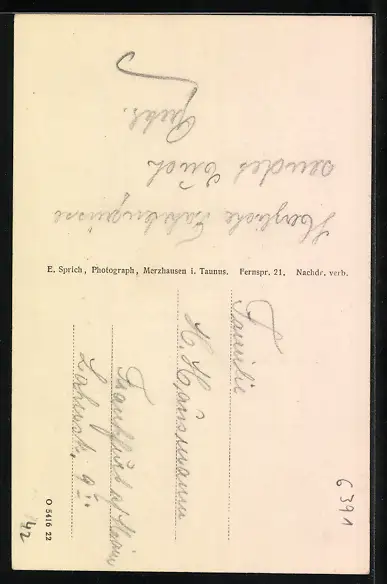 Herzliche Fahrtengrüsse
sendet Euch
E. Sprich, Photograph, Merzhausen i. Taunus. Fernspr. 21. Nachdr. verb.
Familie
H. Hausmann
Frankfurt a/Main
O 5416 22
42
6391